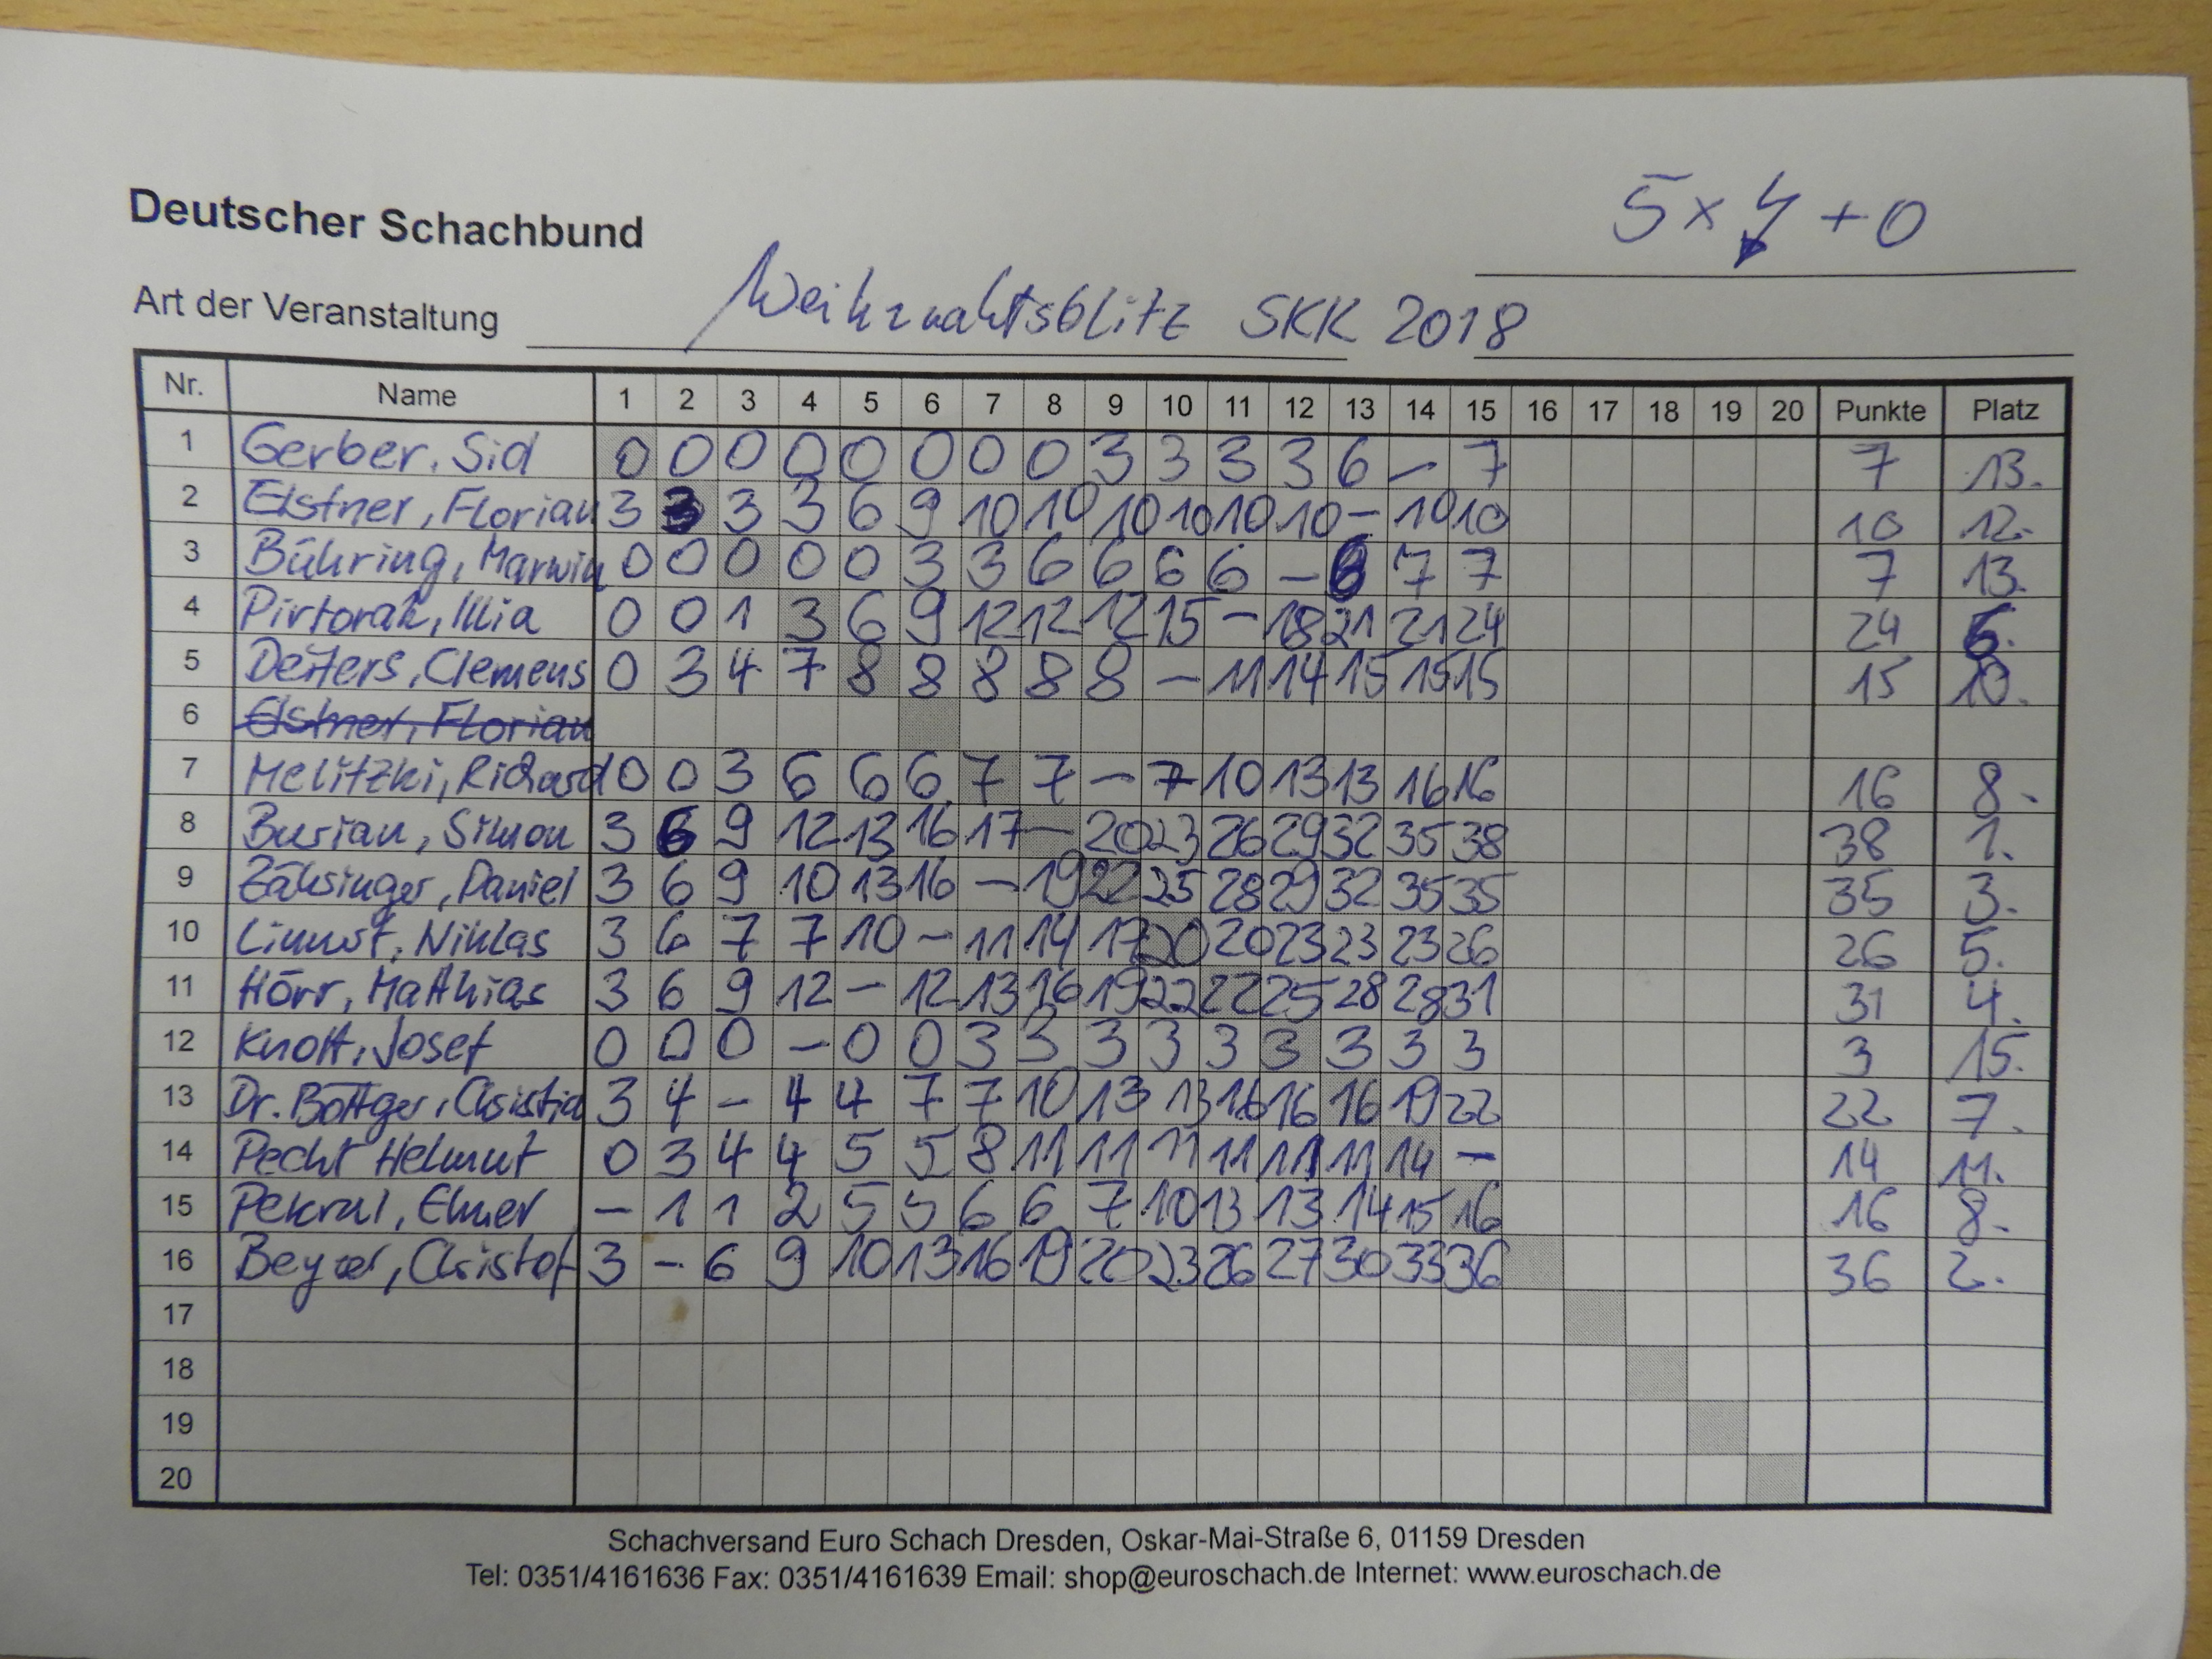 5 x 4 + 0
Deutscher Schachbund
Art der Veranstaltung Weihnachtsblitz SKK 2018
Nr. Name 1 2 3 4 5 6 7 8 9 10 11 12 13 14 15 16 17 18 19 20 Punkte Platz
1 Gerber, Sid 0 0 0 0 0 0 0 0 3 3 3 3 6 – 7 7 13.
2 Elstner, Florian 3 3 3 3 6 9 10 10 10 10 10 10 – 10 10 10 12.
3 Bühring, Marwin 0 0 0 0 0 3 3 6 6 6 6 – 6 7 7 7 13.
4 Pirtorak, Illia 0 0 1 3 6 9 12 12 12 15 – 18 21 21 24 24 6.
5 Deiters, Clemens 0 3 4 7 8 8 8 8 8 – 11 14 15 15 15 15 10.
6 Elstner, Florian
7 Melitzki, Richard 0 0 3 6 6 6 7 7 – 7 10 13 13 16 16 16 8.
8 Burian, Simon 3 6 9 12 13 16 17 – 20 23 26 29 32 35 38 38 1.
9 Zähringer, Daniel 3 6 9 10 13 16 – 19 22 25 28 29 32 35 35 35 3.
10 Niklas 3 6 7 7 10 – 11 14 17 20 20 23 23 23 26 26 5.
11 Hörr, Matthias 3 6 9 12 – 12 13 16 19 22 22 25 28 28 31 31 4.
12 Knott, Josef 0 0 0 – 0 0 3 3 3 3 3 3 3 3 3 3 15.
13 Dr. Böttger, Christia 3 4 – 4 4 7 7 10 13 13 16 16 16 19 22 22 7.
14 Pecht Helmut 0 3 4 4 5 5 8 11 11 11 11 11 11 14 – 14 11.
15 Pekral, Elmer – 1 1 2 5 5 6 6 7 10 13 13 14 15 16 16 8.
16 Beyer, Christof 3 – 6 9 10 13 16 19 20 23 26 27 30 33 36 36 2.
17
18
19
20
Schachversand Euro Schach Dresden, Oskar-Mai-Straße 6, 01159 Dresden
Tel: 0351/4161636 Fax: 0351/4161639 Email: shop@euroschach.de Internet: www.euroschach.de